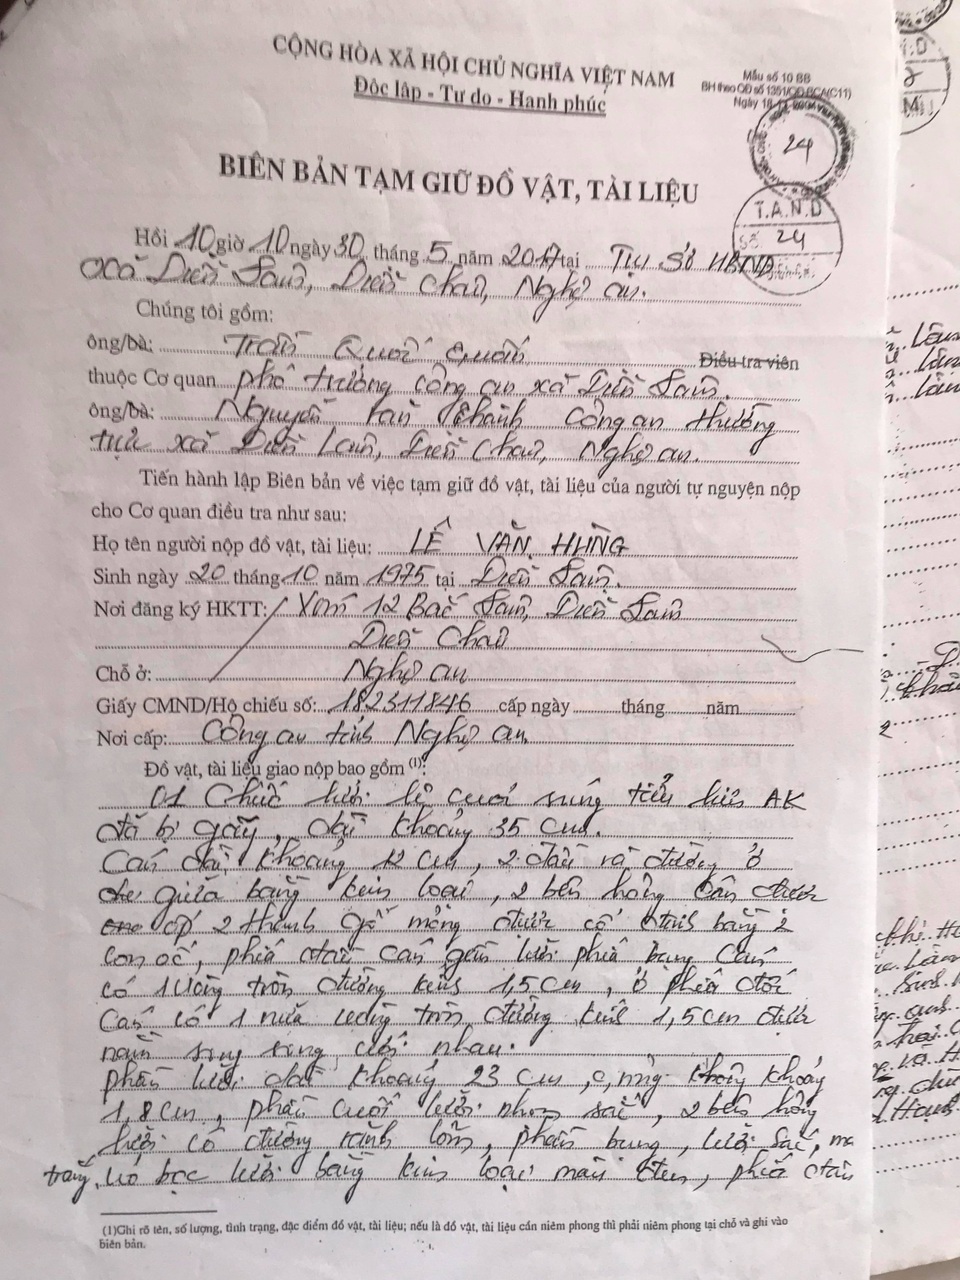 CỘNG HÒA XÃ HỘI CHỦ NGHĨA VIỆT NAM
Độc lập - Tự do - Hạnh phúc
Mẫu số 10 BB
BH theo QĐ số 1351/QĐ-BCA(C11)
Ngày 18
24
BIÊN BẢN TẠM GIỮ ĐỒ VẬT, TÀI LIỆU
T.A.N.D
Số 24
Hồi 10 giờ 10 ngày 30 tháng 5 năm 2017 tại Trụ Sở UBND
xã Diễn Lâm, Diễn Châu, Nghệ An.
Chúng tôi gồm:
ông/bà: Trần Quốc Quân Điều tra viên
thuộc Cơ quan phó trưởng công an xã Diễn Lâm.
ông/bà: Nguyễn Văn Thành Công an thường
trực xã Diễn Lâm, Diễn Châu, Nghệ An.
Tiến hành lập Biên bản về việc tạm giữ đồ vật, tài liệu của người tự nguyện nộp
cho Cơ quan điều tra như sau:
Họ tên người nộp đồ vật, tài liệu: LÊ VĂN HÙNG
Sinh ngày 20 tháng 10 năm 1975 tại Diễn Lâm.
Nơi đăng ký HKTT: Xóm 12 Bắc Lâm, Diễn Lâm
Diễn Châu
Chỗ ở: Nghệ An
Giấy CMND/Hộ chiếu số: 182311846 cấp ngày tháng năm
Nơi cấp: Công an tỉnh Nghệ An
Đồ vật, tài liệu giao nộp bao gồm (1):
01 Chiếc lưỡi lê cuối súng tiểu liên AK
đã bị gãy, dài khoảng 35 cm.
Cán dài khoảng 12 cm, 2 đầu và đường ở
giữa bằng kim loại, 2 bên hông cán được
ốp 2 thanh gỗ mỏng được cố định bằng 2
con ốc, phía đầu cán gần lưỡi phía bụng cán
có 1 vòng tròn đường kính 1,5 cm, ở phía đối
cán có 1 nửa vòng tròn đường kính 1,5 cm được
nằm song song với nhau.
phần lưỡi dài khoảng 23 cm, rộng khoảng
1,8 cm, phần cuối lưỡi nhọn sắc, 2 bên hông
lưỡi có đường rãnh lõm, phần bụng, lưỡi sắc, màu
trắng, vỏ bọc lưỡi bằng kim loại màu đen, phía đầu
(1)Ghi rõ tên, số lượng, tình trạng, đặc điểm đồ vật, tài liệu; nếu là đồ vật, tài liệu cần niêm phong thì phải niêm phong tại chỗ và ghi vào
biên bản.